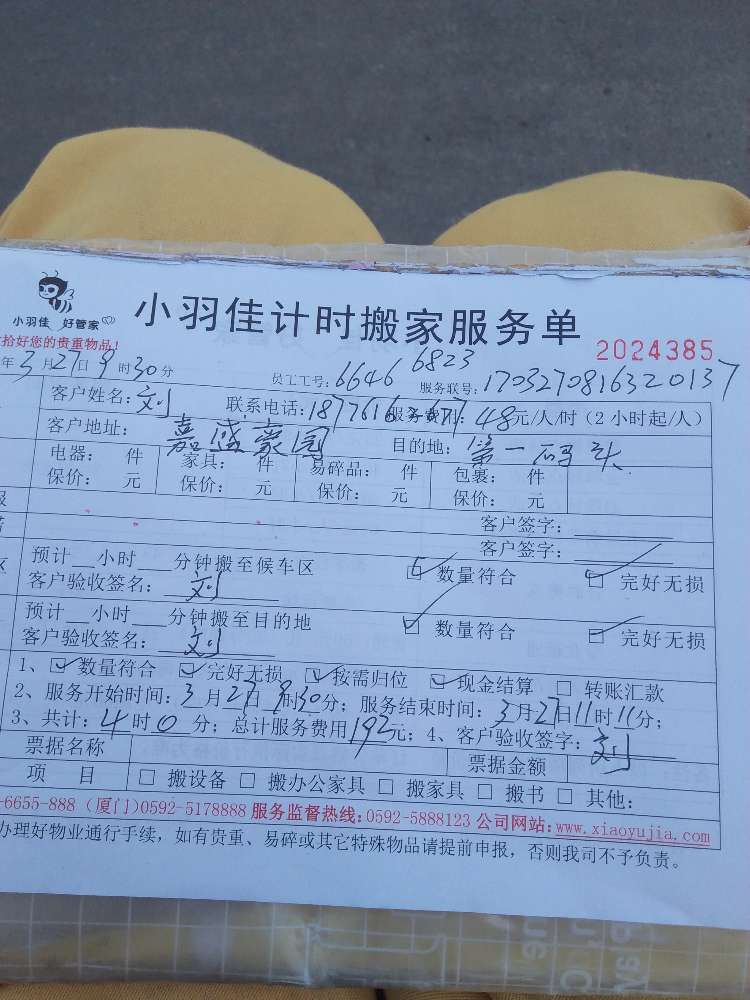 小羽佳 好管家
小羽佳计时搬家服务单
拾好您的贵重物品!
2024385
年3月27日9时30分 员工工号:6646 6823 服务联号:170327081632 0137
客户姓名:刘 联系电话: 48元/人/时(2小时起/人)
客户地址:嘉盛豪园 目的地:第一码头
电器: 件 家具: 件 易碎品: 件 包裹: 件
保价: 元 保价: 元 保价: 元 保价: 元
客户签字:
客户签字:
预计__小时___分钟搬至候车区 数量符合 完好无损
客户验收签名:刘
预计__小时___分钟搬至目的地 数量符合 完好无损
客户验收签名:刘
1、数量符合 完好无损 按需归位 现金结算 转账汇款
2、服务开始时间:3月27日9时30分;服务结束时间:3月27日11时11分;
3、共计:4时0分;总计服务费用192元;4、客户验收签字:刘
票据名称 票据金额
项 目 搬设备 搬办公家具 搬家具 搬书 其他:
-6655-888(厦门)0592-5178888 服务监督热线:0592-5888123 公司网站:www.xiaoyujia.com
办理好物业通行手续,如有贵重、易碎或其它特殊物品请提前申报,否则我司不予负责。